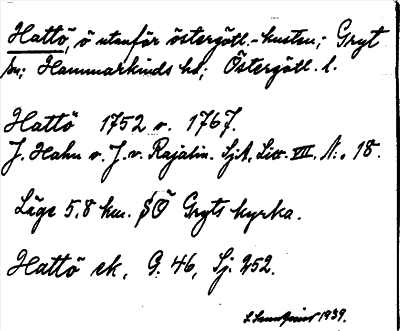 Hattö, ö utanför östergötl.-kusten; Gryt
sn; Hammarkinds hd; Östergötl. l.
Hattö 1752 o. 1767.
J. Hahn o. J. v. Rajalin. SjA, Litt. VII. N:o 18.
Läge 5,8 km. SÖ Gryts kyrka.
Hattö ek, G. 46, Sj. 252.
1939.